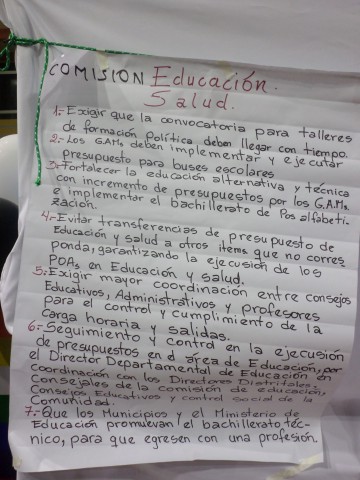 COMISION Educación.
Salud.
1.- Exigir que la convocatoria para talleres
de formación Política deben llegar con tiempo.
2.- Los G.AMs deben implementar y ejecutar
presupuesto para buses escolares
3.- Fortalecer la educación alternativa y técnica
con incremento de presupuestos por los G.A.Ms.
e implementar el bachillerato de Pos alfabeti-
zación.
4.- Evitar transferencias de presupuesto de
Educación y salud a otros items que no corres
ponda, garantizando la ejecusion de los
POAs en Educación y salud.
5.- Exigir mayor coordinación entre consejos
Educativos, Administrativos y profesores
para el control y cumplimiento de la
carga horaria y salidas.
6.- Seguimiento y control en la ejecusión
de presupuestos en el área de Educación, por
el Director Departamental de Educación en
coordinación con los Directores Distritales.
Consejales de la comisión de educación,
Consejos Educativos y control social de la
Comunidad.
7.- Que los Municipios y el Ministerio de
Educación promuevan el bachillerato téc-
nico, para que egresen con una profesión.